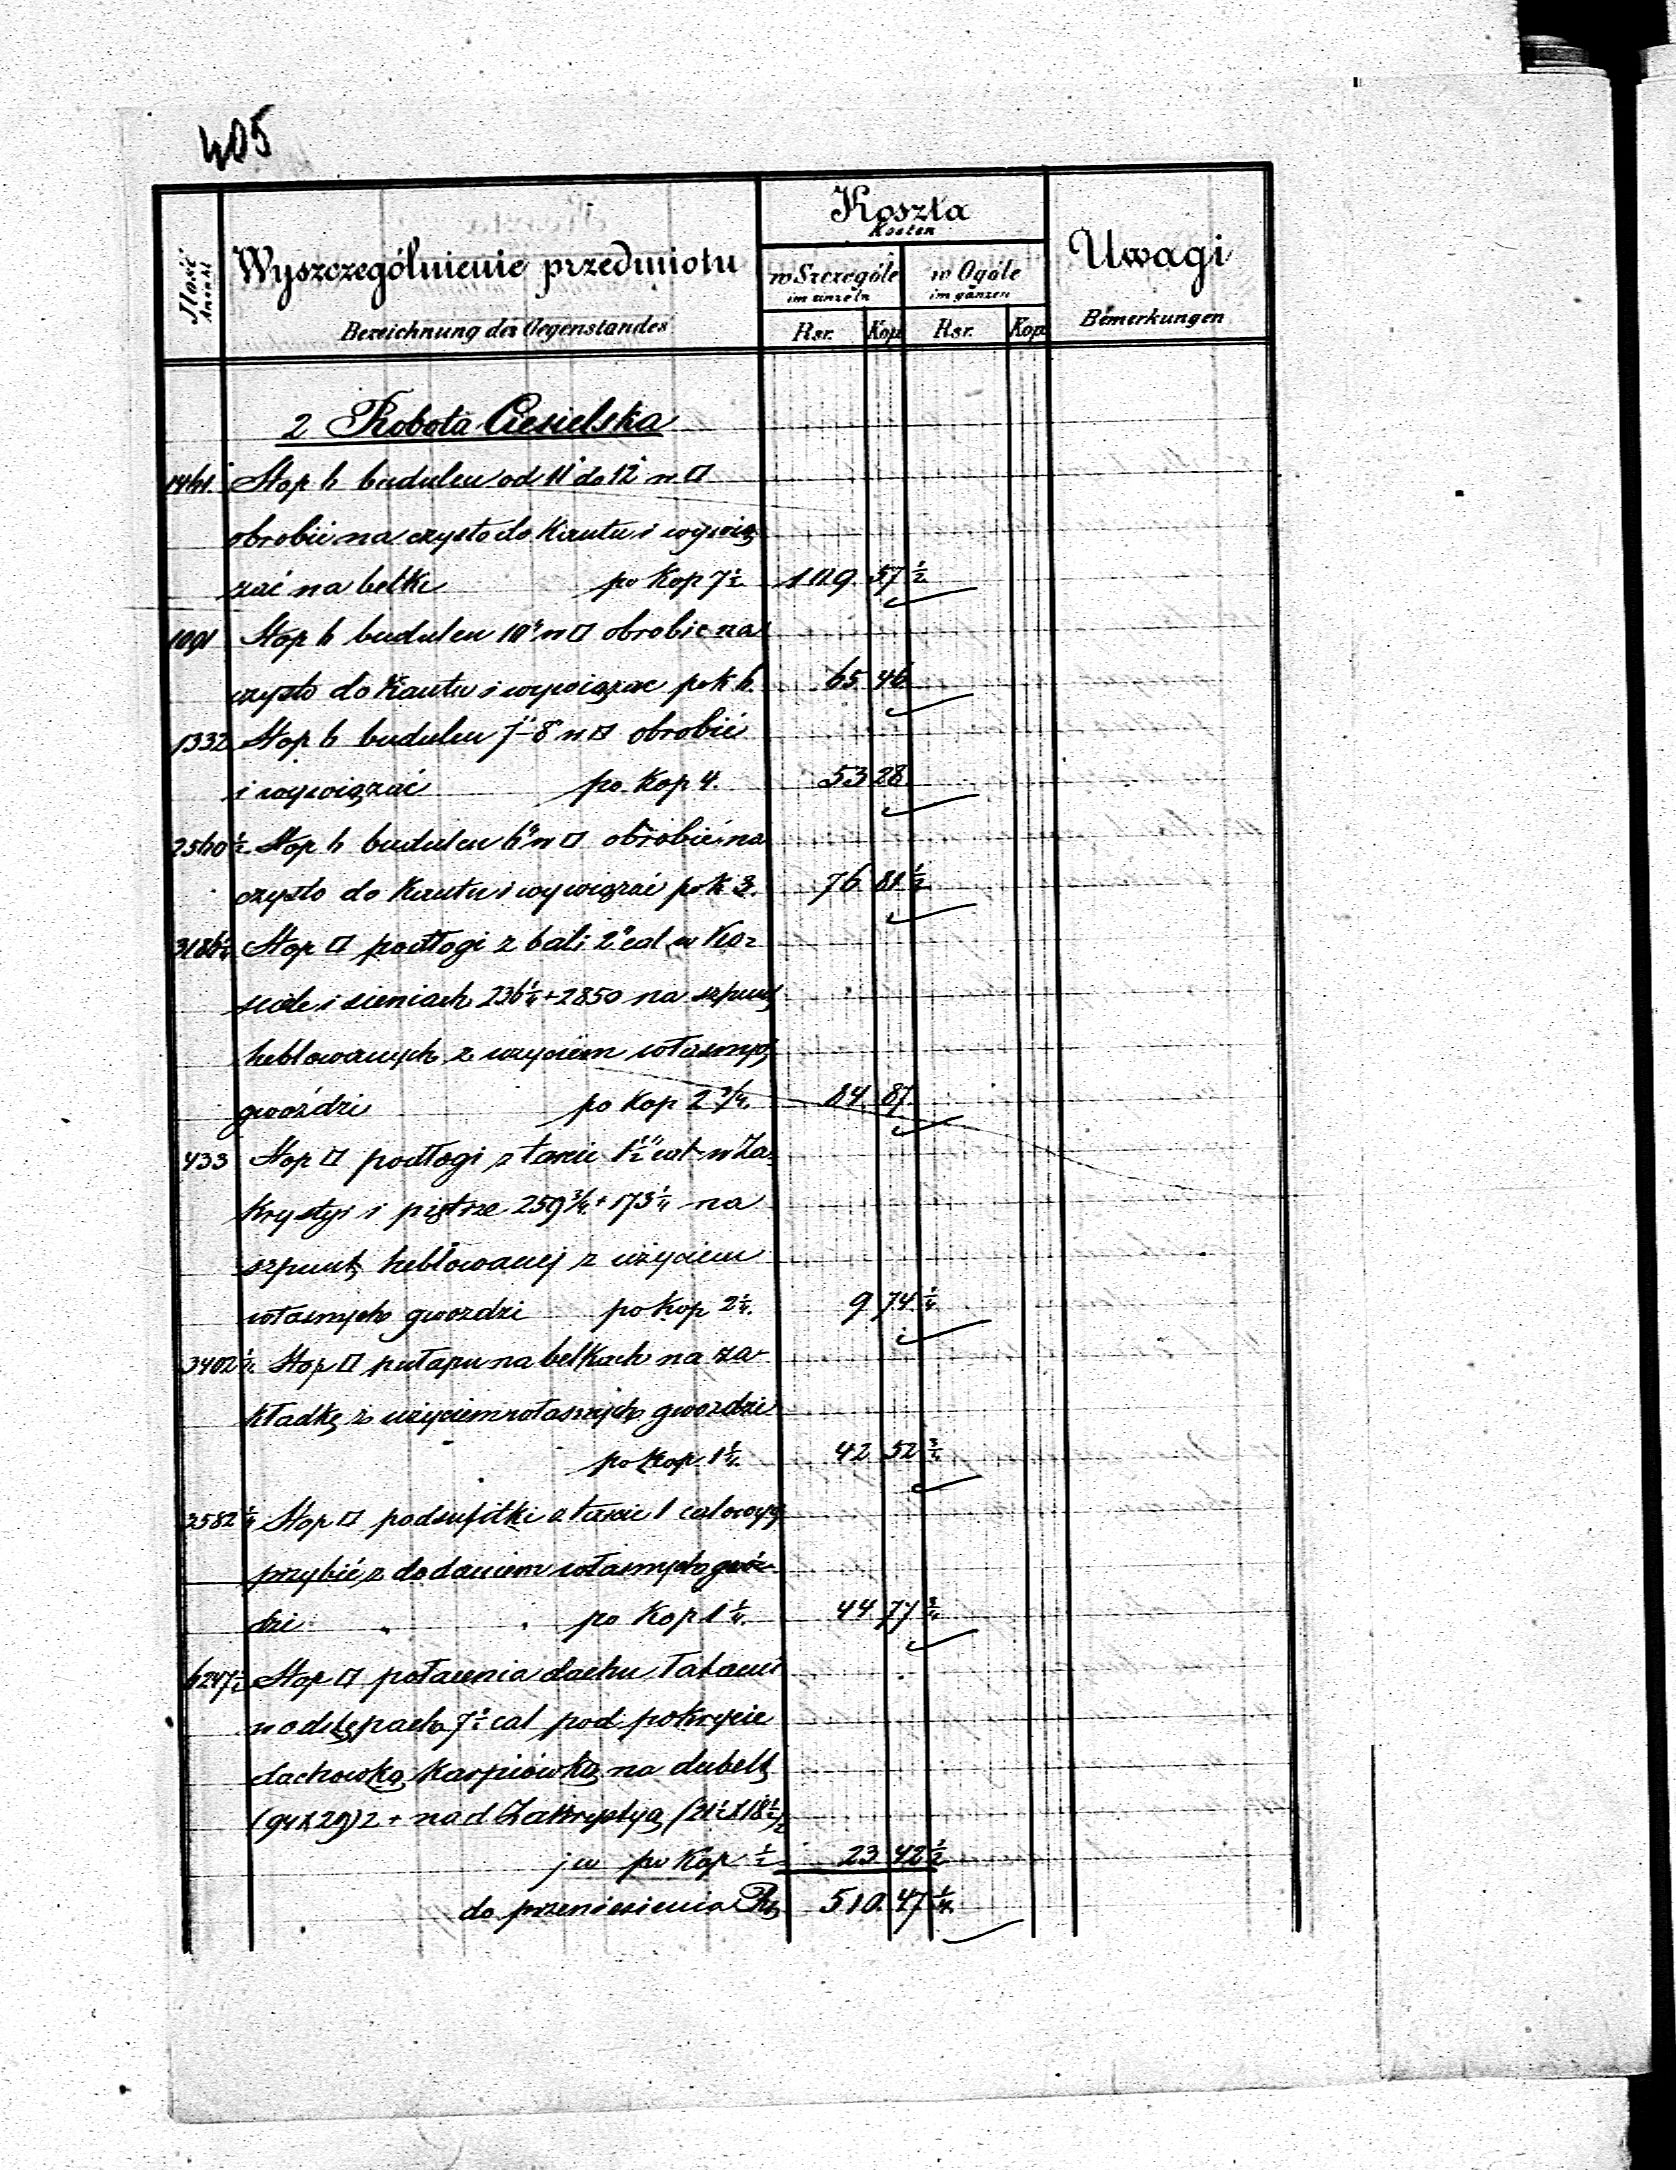 405
Ilość
Anzahl
Wyszczególnienie przedmiotu
Bezeichnung des Gegenstandes
Koszta
Kosten
w Szczególe
im einzeln
w Ogóle
im gänzen
Rsr. Kop. Rsr. Kop.
Uwagi
Bemerkungen
2 Robota Ciesielska
1461. Stop b budulcu od 11" do 12" w □
obrobić na czysto do kantu i wywią
zać na belki po Kop 7½ 109. 57½
1091 Stop b budulcu 10" w □ obrobic na
czysto do Kantu i wywiązac po k 6. 65. 46
1332 Stop b budulcu 7"-8" w □ obrobić
i wywiązać po Kop 4. 53 28.
2560½ Stop b budulcu 6" w □ obrobić na
czysto do Kantu i wywiązać po k 3. 76 81½
3186¼ Stop □ podłogi z bali 2" cal w Ko-
sciele i sieniach 236¼+2850 na szpunt
heblowanych z uzyciem własnych
gwoździ po Kop 2¾. 84. 87.
433 Stop □ podłogi z tarcic 1½" cal w Za-
Krystyi i piętrze 259¾+173¼ na
szpunt heblowanej z użyciem
własnych gwozdzi po Kop 2¼. 9 74¼
3402¼ Stop □ pułapu na belkach na za-
kładkę z użyciem własnych gwozdzi
po Kop. 1¼. 42. 52¾
3582¼ Stop □ podsufitki z tarcic 1 calowych
przybić z dodaniem własnych gwoź-
dzi po Kop 1¼. 44. 77¾
6247½ Stop □ połacenia dachu łatami
w odstępach 7½ cal pod pokrycie
dachowką Karpiówką na dubelt
(94X29)2 + nad Zakrystyą (31½X18½)2
jw po Kop ½ 23. 42½
do przeniesienia Rs 510. 47¼